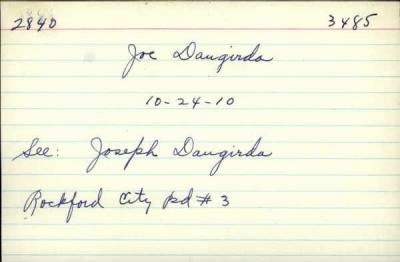 2840 3485
Joe Daugirda
10-24-10
See: Joseph Daugirda
Rockford City pd # 3